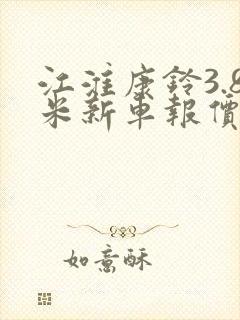 江淮康鈴3.8
米新車報價
如意酥